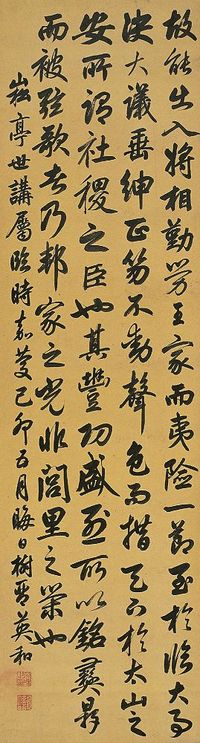 故能出入將相勤勞王家而夷險一節至於臨大事
決大議垂紳正笏不動聲色而措天下於太山之
安所謂社稷之臣也其豐功盛烈所以銘彝鼎
而被弦歌者乃邦家之光非閭里之榮也
崧亭世講屬臨時嘉慶己卯五月晦日樹琴英和